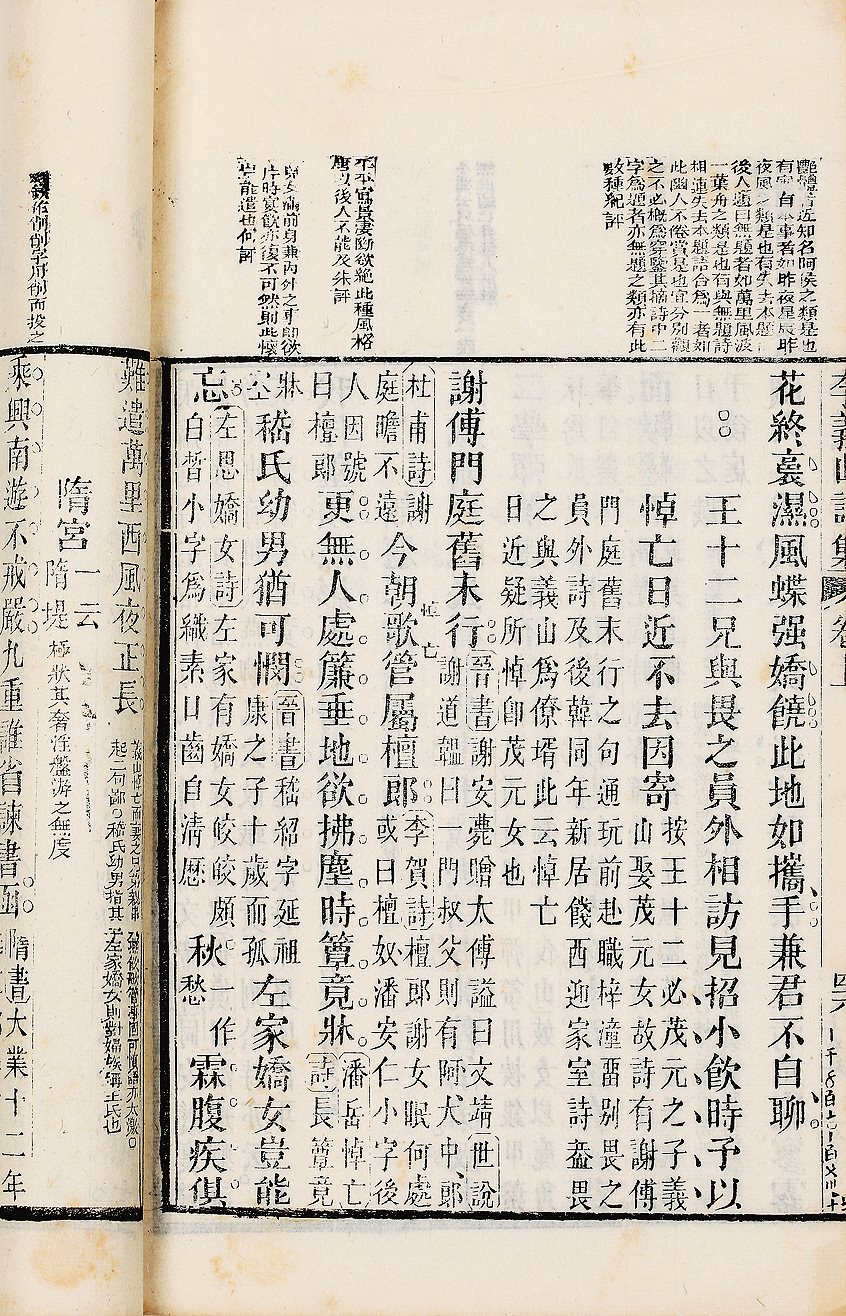 有實有本事者如昨夜星辰昨
夜風之類是也有失去本題
後人題曰無題者如萬里風波
一葉舟之類是也有與無題詩
相連失去本題語合為一者如
此幽人不倦賞是也宜分別觀
之不必概為穿鑿其摘詩中二
字為題者亦無題之類亦有此
數種紀評
凄斷欲絕此種風格
唐以後人不能及朱評
片時宴飲亦復不可然則此懷
豈能遣也何評
花終裛濕風蝶强嬌饒此地如攜手兼君不自聊
王十二兄與畏之員外相訪見招小飲時予以
悼亡日近不去因寄
按王十二必茂元之子義
山娶茂元女故詩有謝傅
門庭舊末行之句通玩前赴職梓潼畱別畏之
員外詩及後韓同年新居餞西迎家室詩葢畏
之與義山為僚壻此云悼亡
日近疑所悼卽茂元女也
謝傅門庭舊末行
晉書謝安薨贈太傅謚曰文靖世說
謝道韞曰一門叔父則有阿大中郎
悼亡
今朝歌管屬檀郎
李賀詩檀郎謝女眠何處
或曰檀奴潘安仁小字後
杜甫詩謝
庭瞻不遠
人因號
曰檀郎
更無人處簾垂地欲拂塵時簟竟牀
潘岳悼亡
詩長簟竟
牀
空
嵇氏幼男猶可憫
晉書嵇紹字延祖
康之子十歲而孤
左家嬌女豈能
忘
左思嬌女詩左家有嬌女皎皎頗
白皙小字為纖素口齒自清歷
秋
一作
愁
霖腹疾俱
難遣萬里西風夜正長
起二句鄙○嵇氏幼男指其
子左家嬌女則對婦族稱王氏也
隋宮
一云
隋堤
極狀其奢淫盤游之無度
乘興南遊不戒嚴九重誰省諫書函
隋書大業十二年